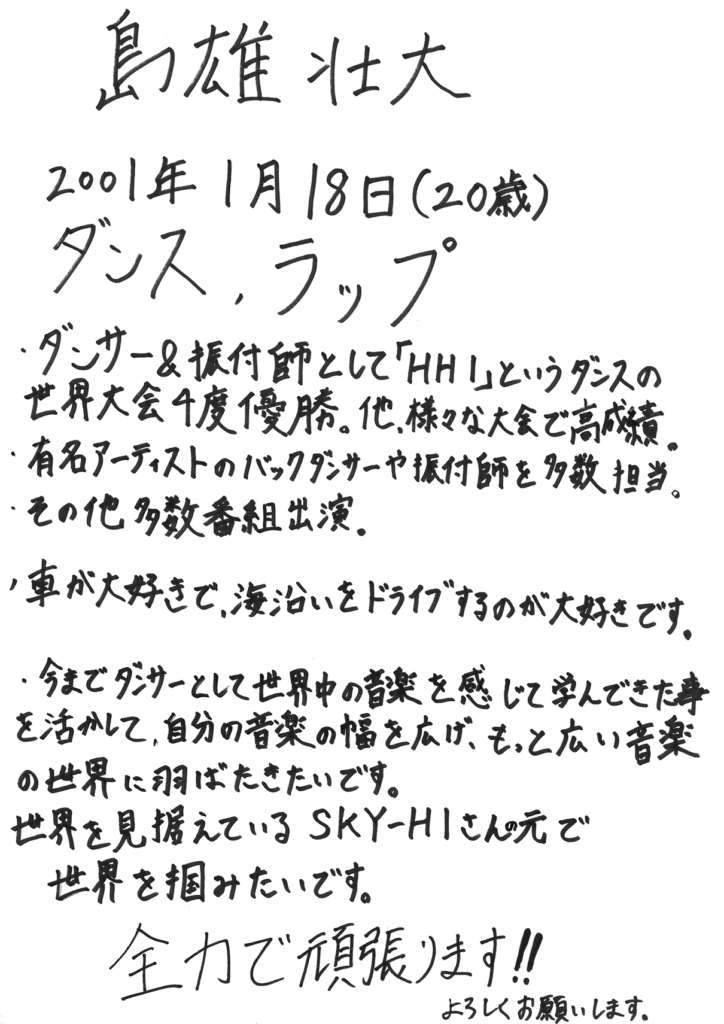 島雄 壮大
2001年 1月 18日(20歳)
ダンス、ラップ
・ダンサー&振付師として「HHI」というダンスの
世界大会4度優勝。他、様々な大会で高成績。
・有名アーティストのバックダンサーや振付師を多数担当。
・その他多数番組出演。
・車が大好きで、海沿いをドライブするのが大好きです。
・今までダンサーとして世界中の音楽を感じて学んできた事
を活かして、自分の音楽の幅を広げ、もっと広い音楽
の世界に羽ばたきたいです。
世界を見据えているSKY-HIさんの元で
世界を掴みたいです。
全力で頑張ります!!
よろしくお願いします。